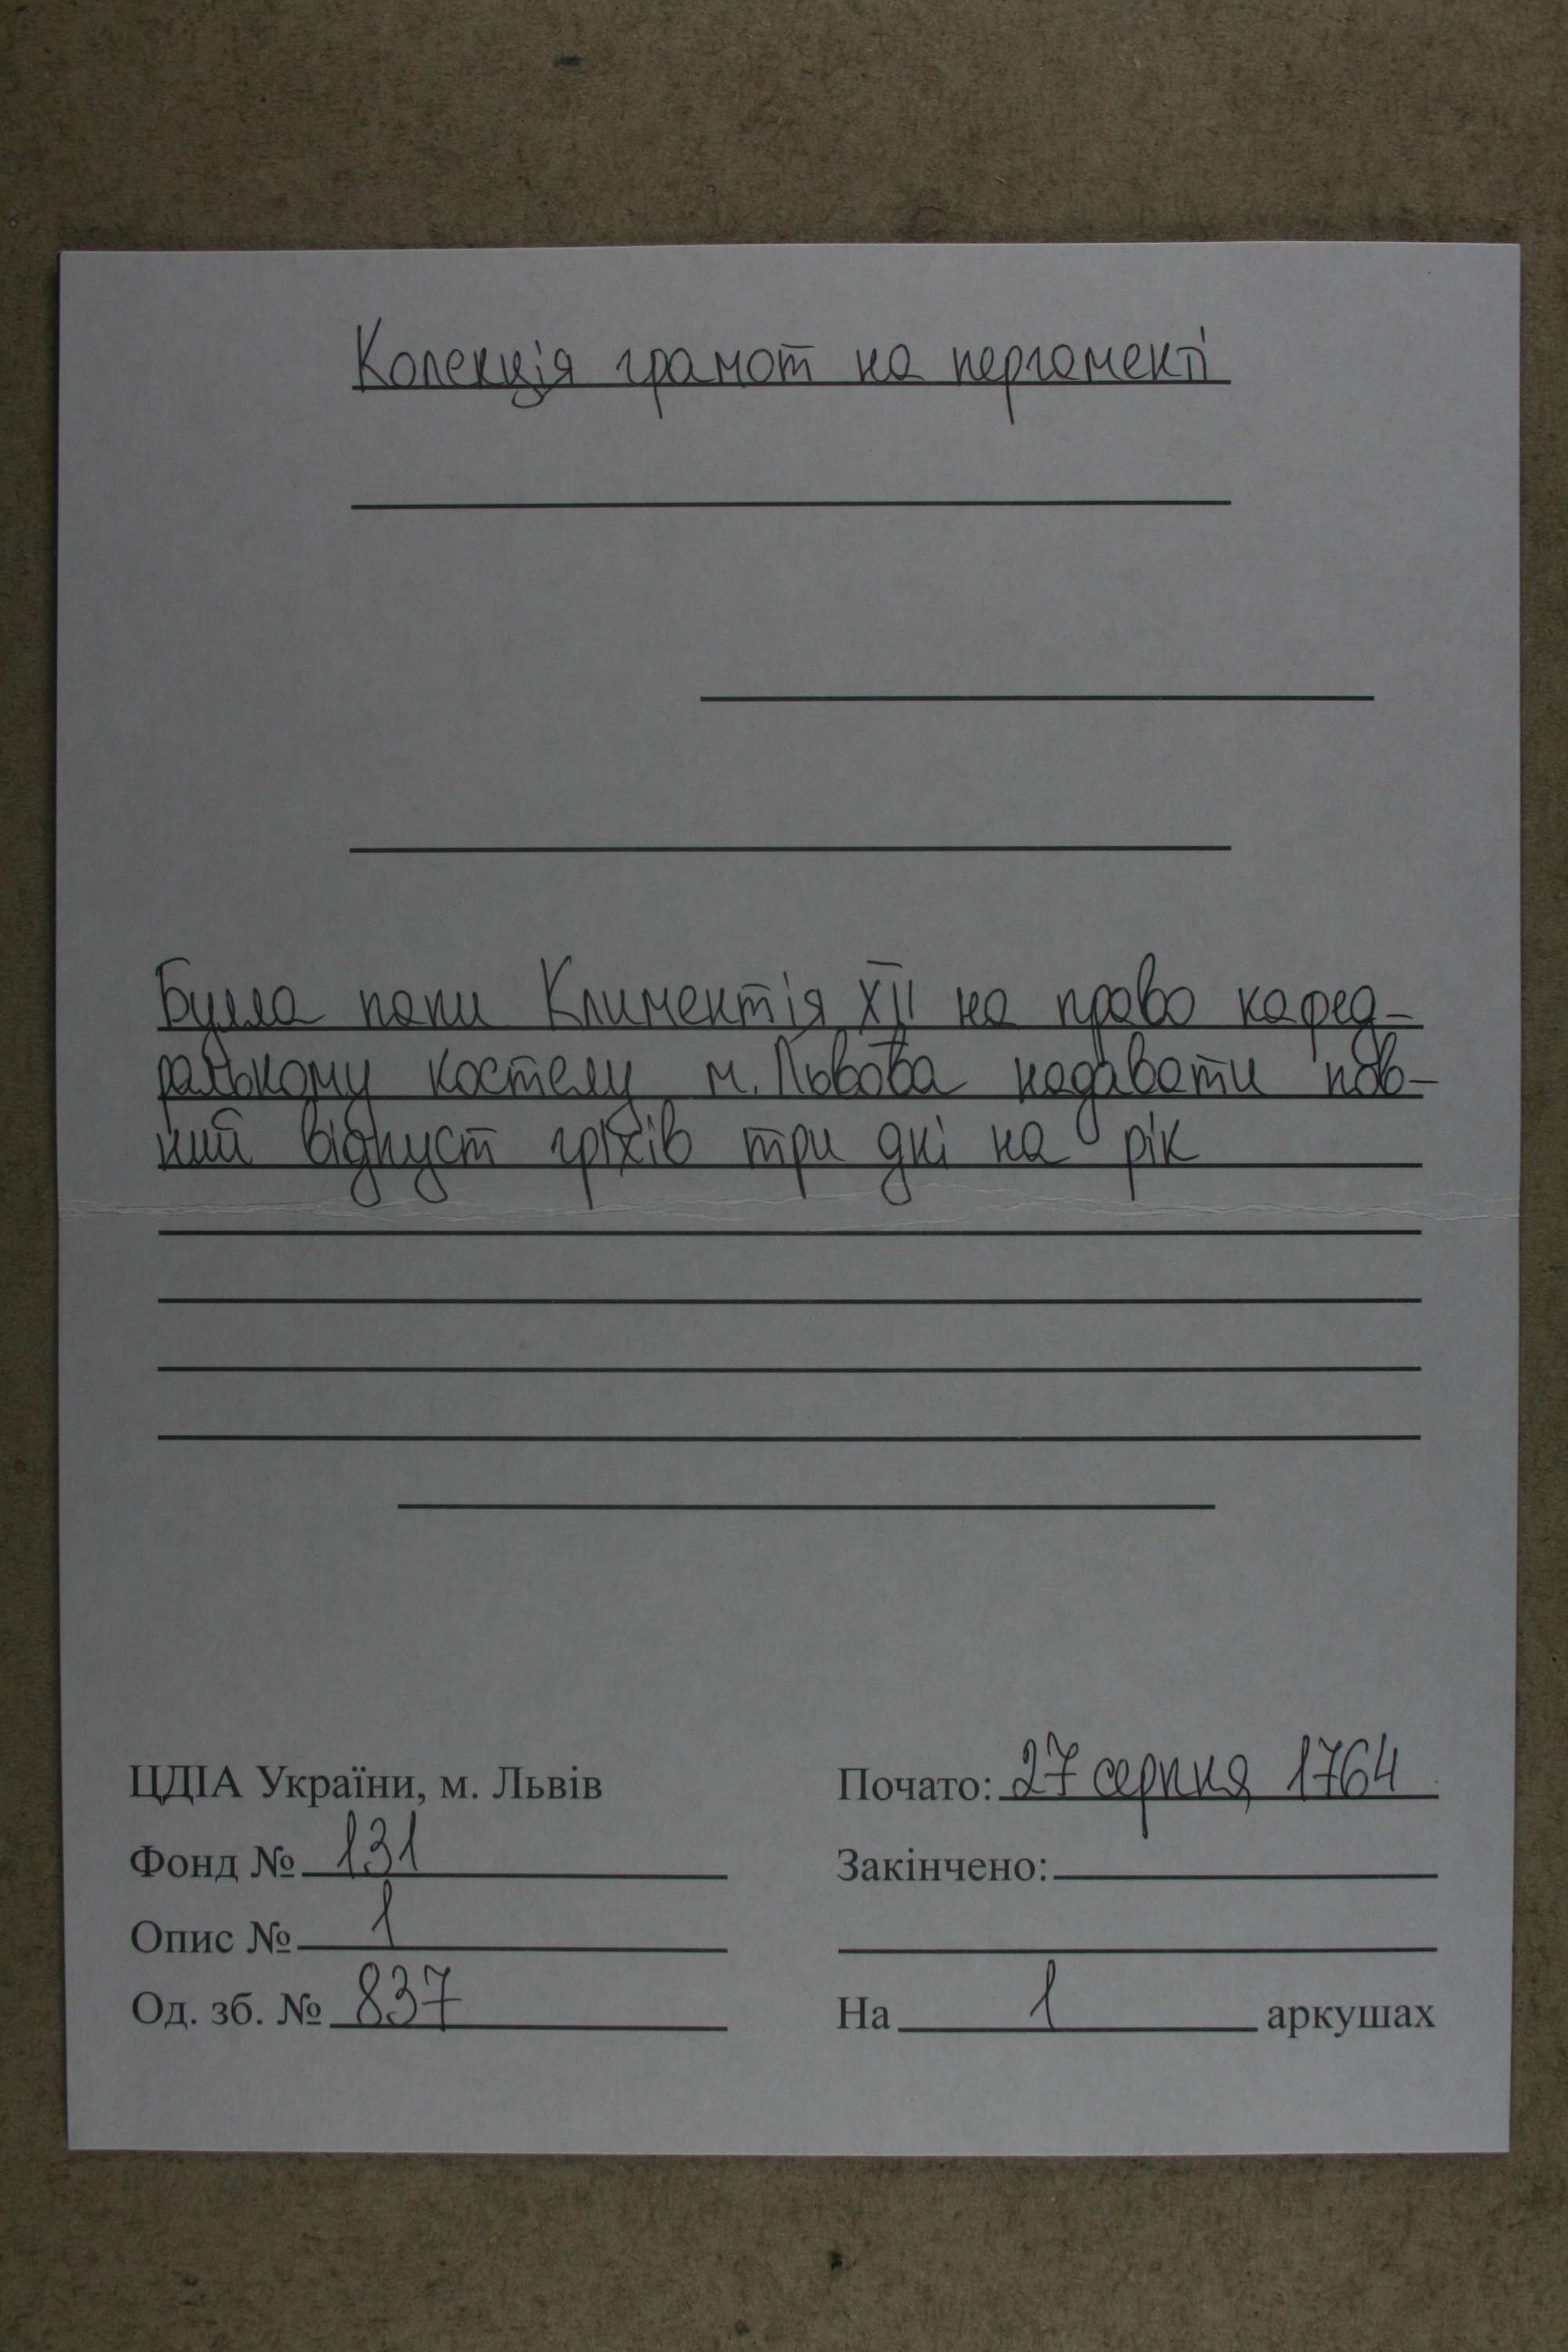 Колекція грамот на пергаменті
Булла папи Климентія XII на право кафед-
ральному костелу м. Львова надавати пов-
ний відпуст гріхів три дні на рік
ЦДІА України, м. Львів
Фонд № 131
Опис № 1
Од. зб. № 837
Почато: 27 серпня 1764
Закінчено:
На 1 аркушах